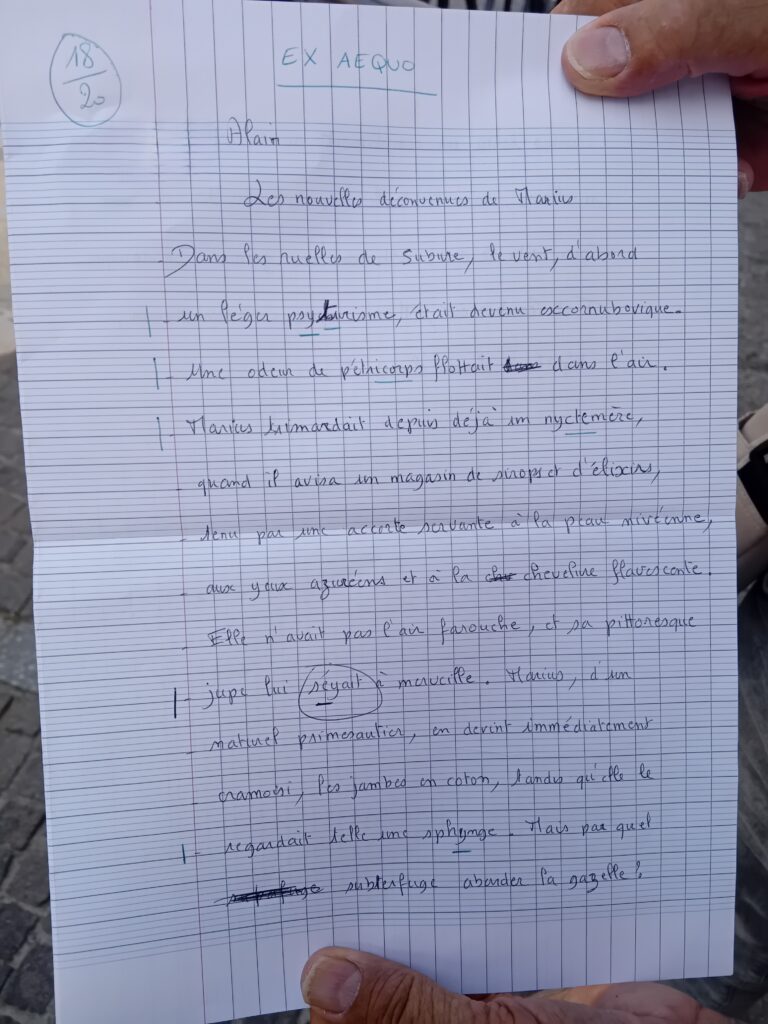 18
20
EX AEQUO
Alain
Les nouvelles déconvenues de Marius
Dans les ruelles de Subure, le vent, d'abord
un léger psyturisme, était devenu excornubovique.
Une odeur de pélnicorps flottait dans l'air.
Marius trimardait depuis déjà un nyctemère,
quand il avisa un magasin de sirops et d'élixirs,
tenu par une accorte servante à la peau nivéenne,
aux yeux azuréens et à la cheveline flavescente.
Elle n'avait pas l'air farouche, et sa pittoresque
jupe lui séyait à merveille. Marius, d'un
naturel primesautier, en devint immédiatement
cramoisi, les jambes en coton, tandis qu'elle le
regardait telle une sphynge. Mais par quel
subterfuge aborder la gazelle?